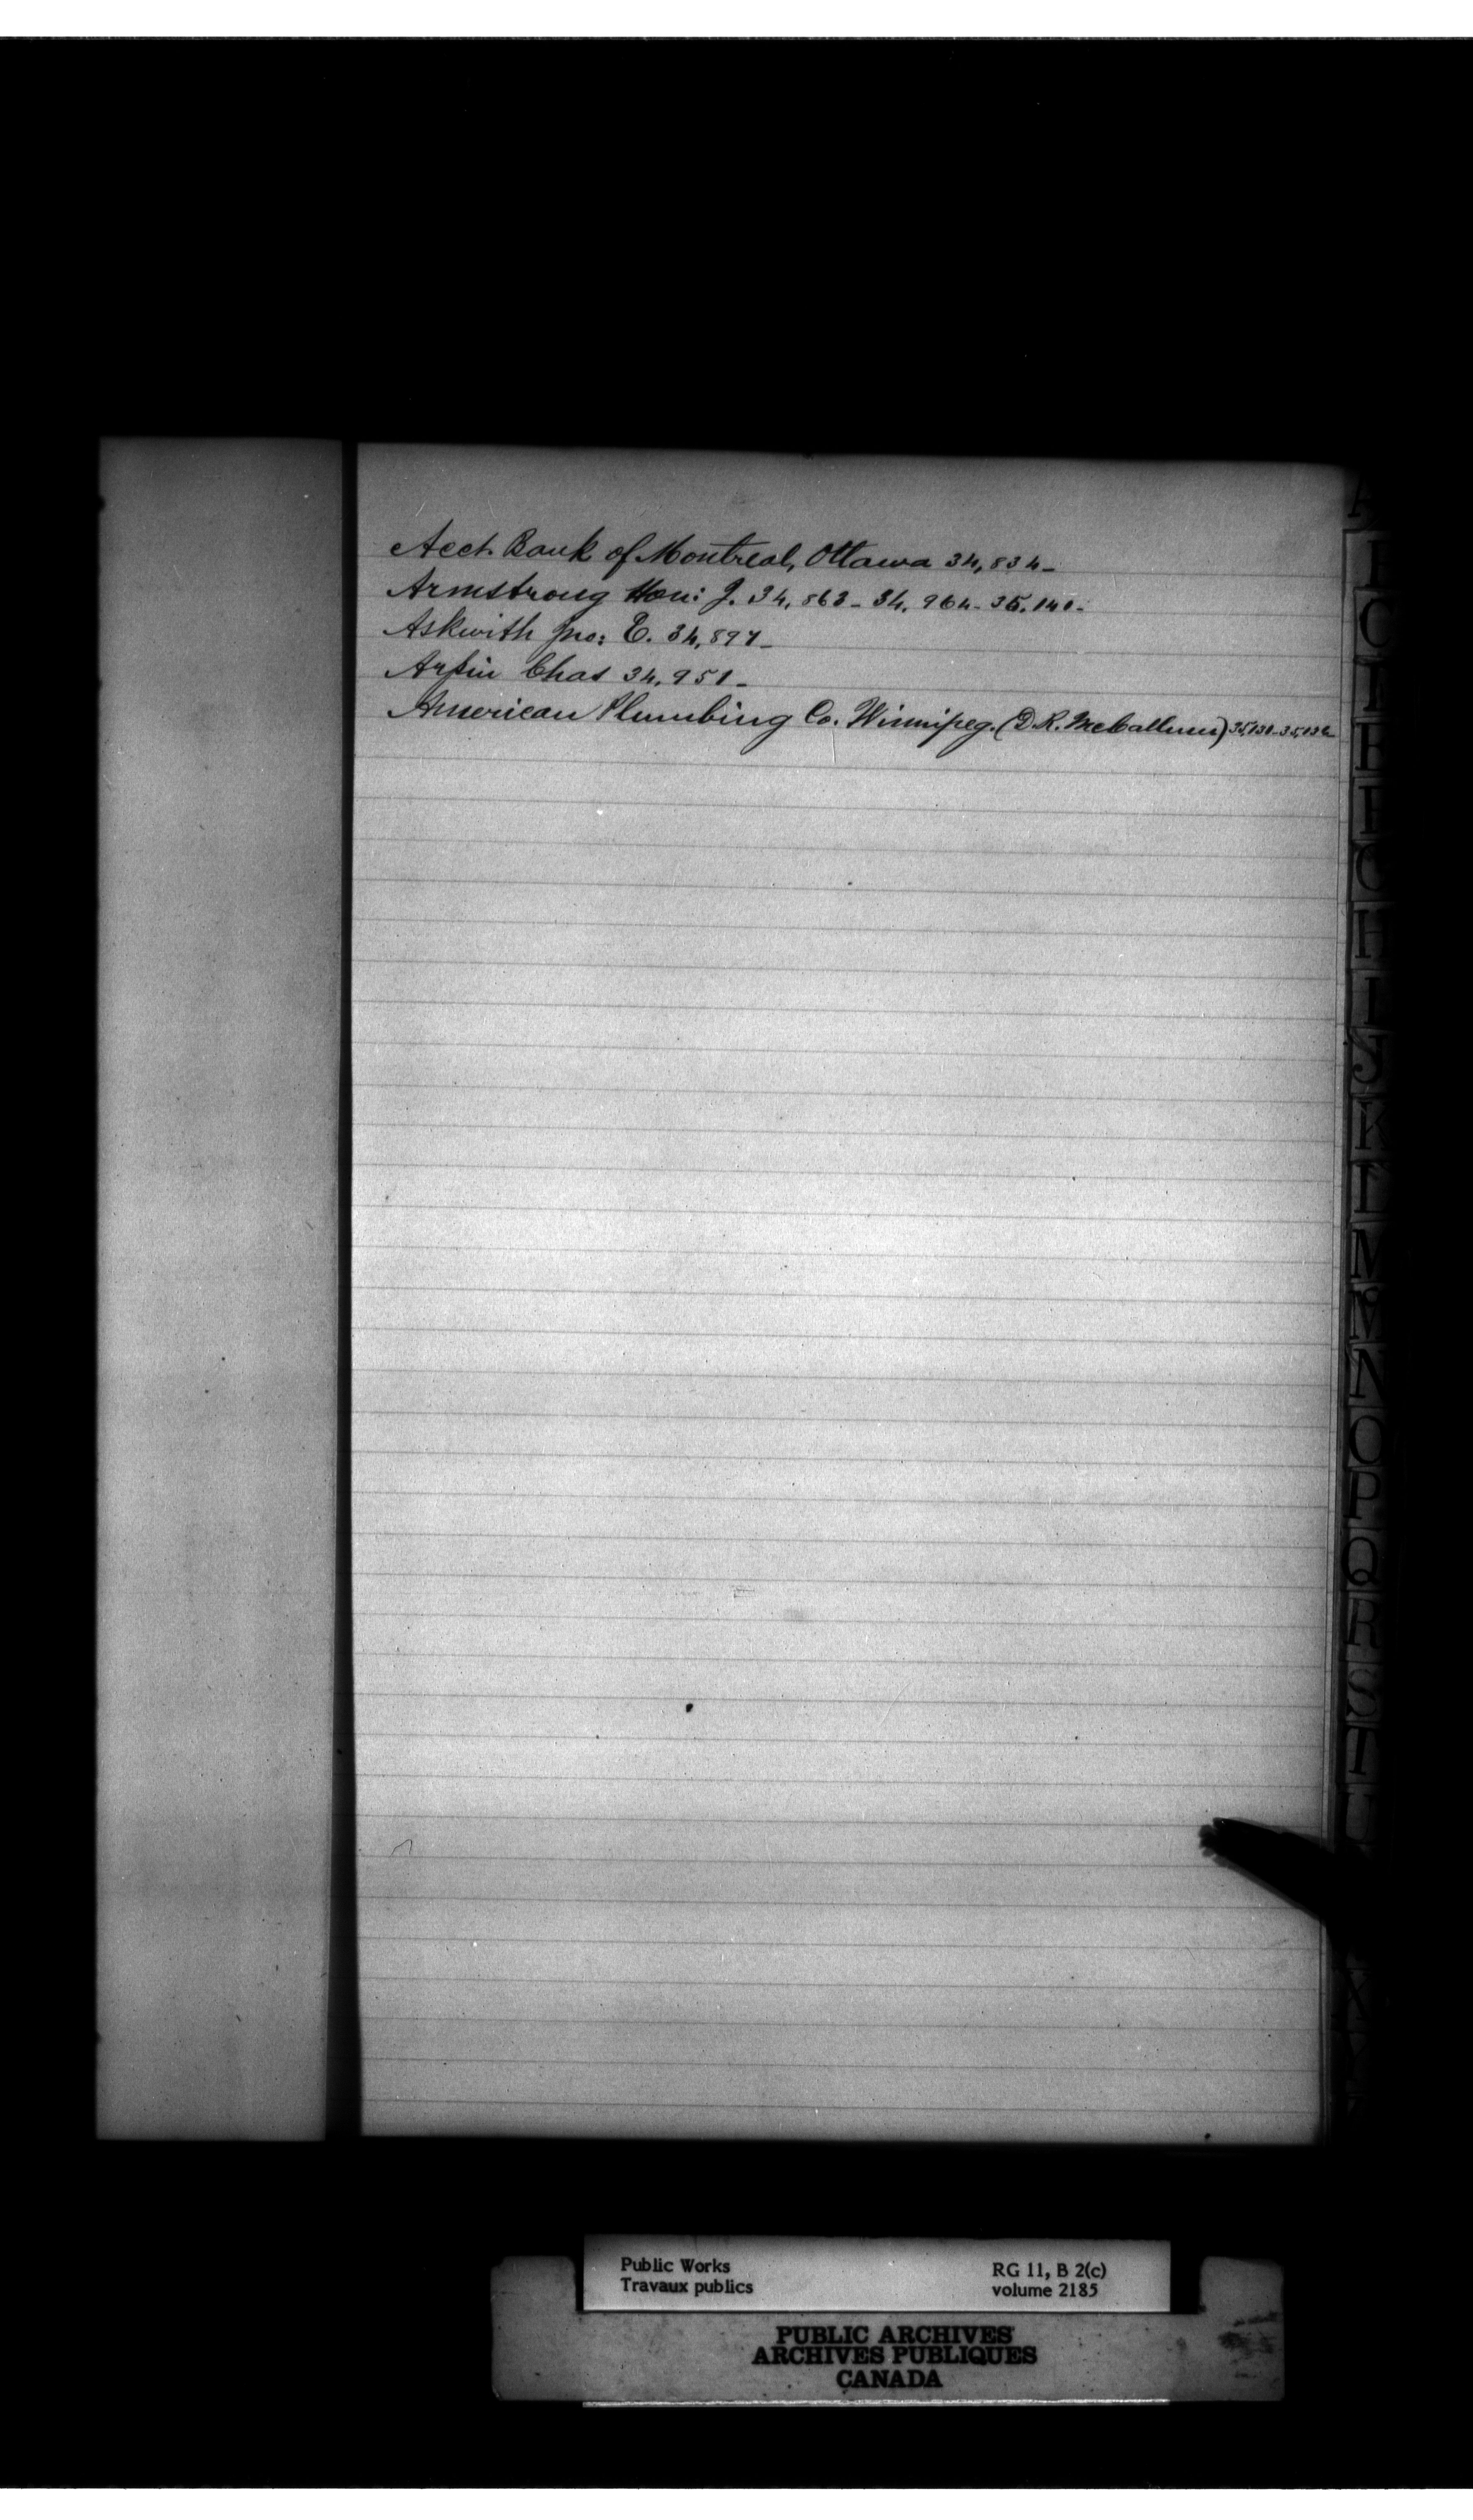 Acct. Bank of Montreal, Ottawa 34,834-
Armstrong Hon: J. 34,863- 34,964- 35,141-
Askwith Jno: E. 34,897-
Arpin Chas 34,951-
American Plumbing Co. Winnipeg. (D.R. McCallum) 35,131-35,132-
A
B
C
D
E
F
G
H
I
J
K
L
M
M
N
O
P
Q
R
S
T
Public Works
Travaux publics
RG 11, B 2(c)
volume 2185
PUBLIC ARCHIVES
ARCHIVES PUBLIQUES
CANADA